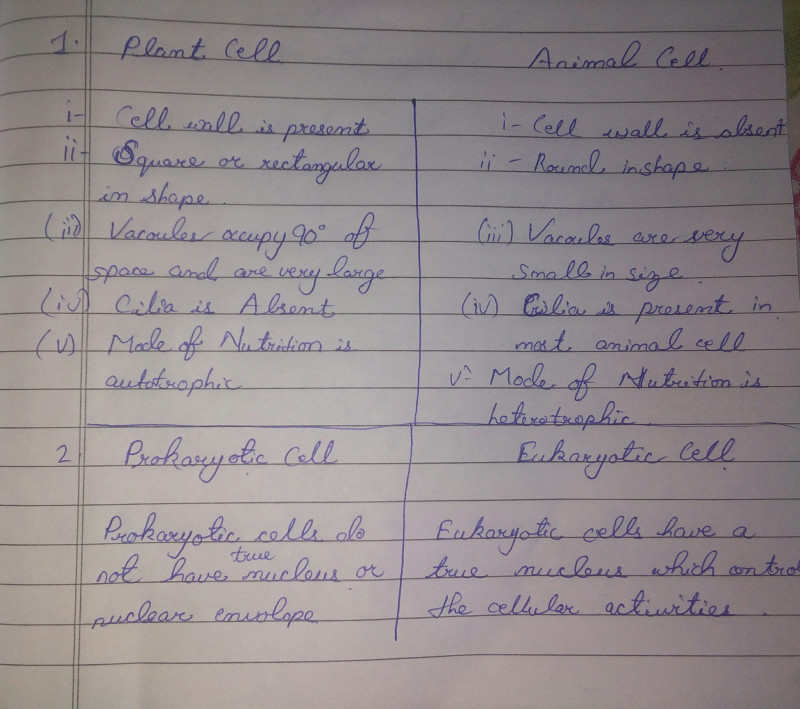 1. Plant Cell Animal Cell
i- Cell wall is present i- Cell wall is absent
ii- Square or rectangular ii - Round in shape.
in shape.
(iii) Vacoules occupy 90° of (iii) Vacoules are very
space and are very large small in size.
(iv) Cilia is Absent (iv) Cilia is present in
(v) Mode of Nutrition is most animal cell
autotrophic v- Mode of Nutrition is
heterotrophic.
2 Prokaryotic Cell Eukaryotic Cell
Prokaryotic cells do Eukaryotic cells have a
true
not have nucleus or true nucleus which control
nuclear envelope the cellular activities.